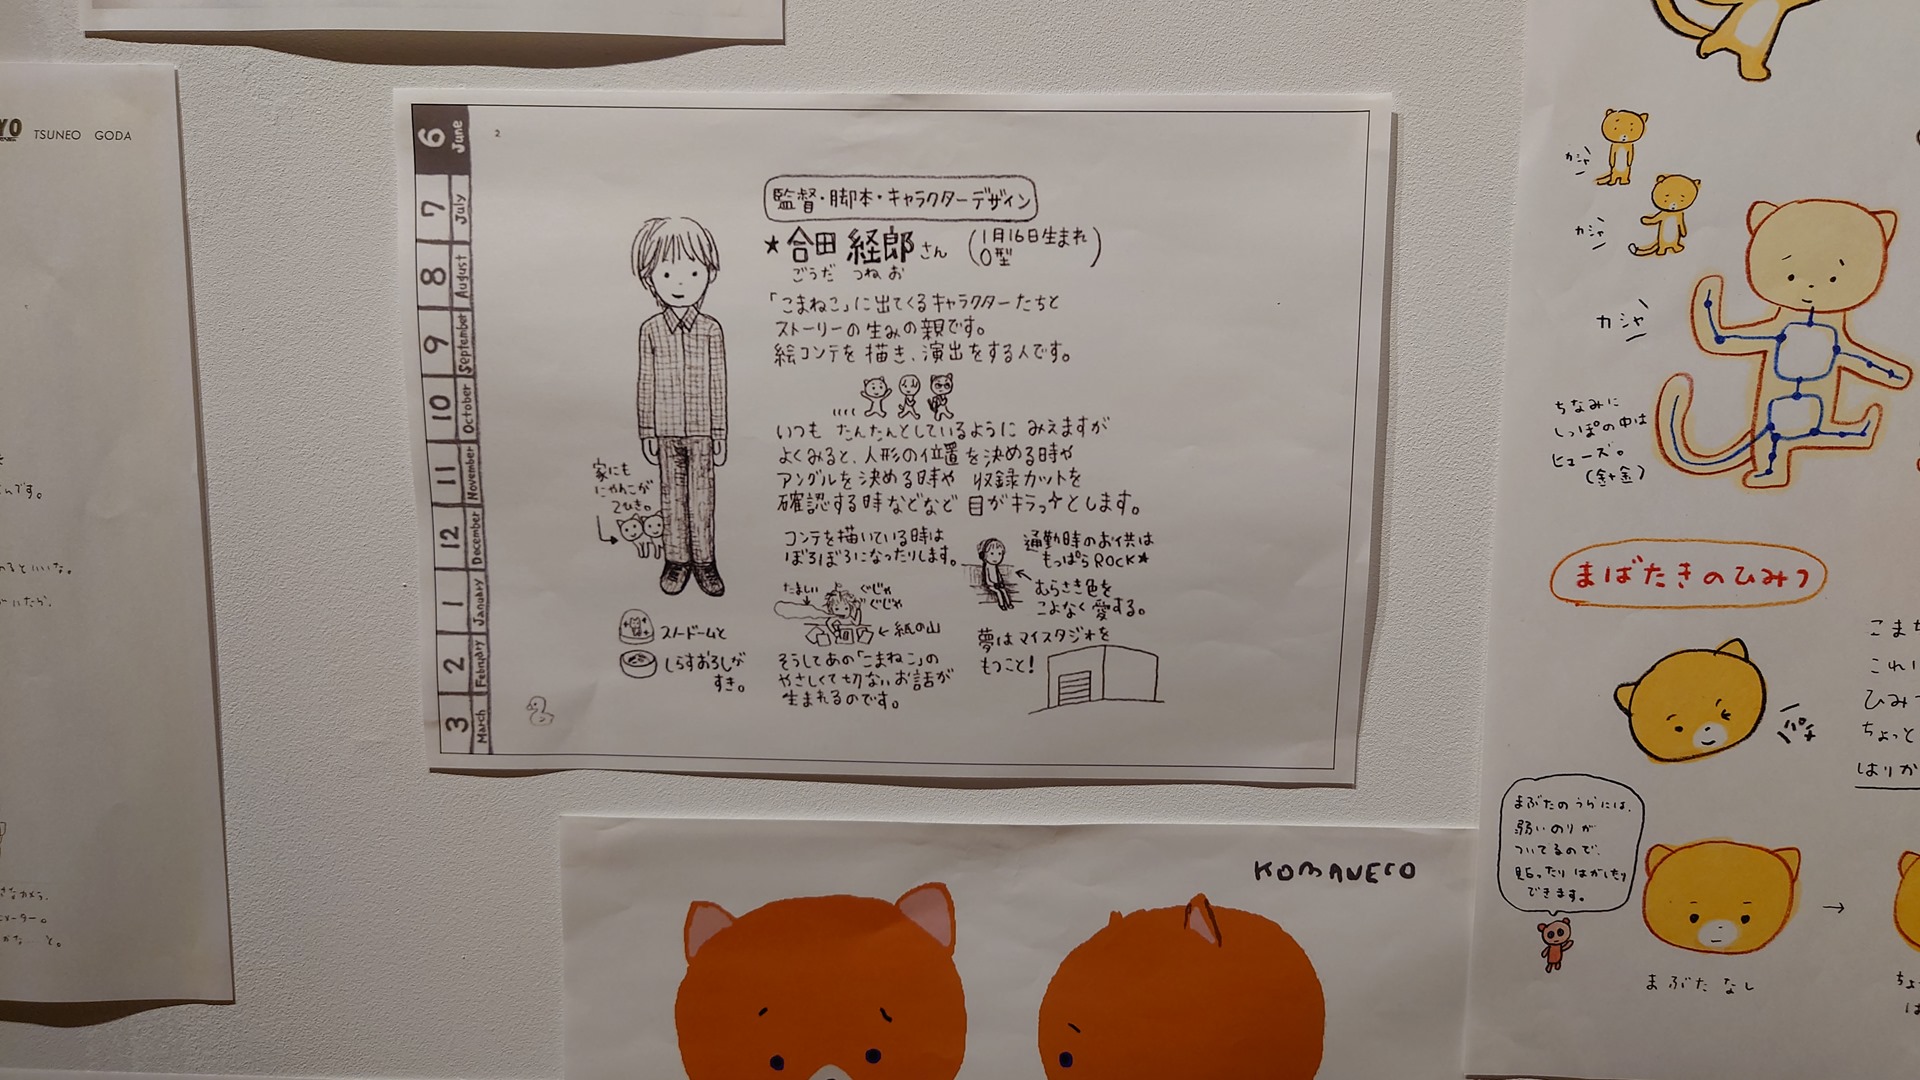 YO TSUNEO GODA
んです。
のるといいな。
がいたら、
きなカメラ。
と。
6 June
7 July
8 August
9 September
10 October
11 November
12 December
1 January
2 February
3 March
2
監督・脚本・キャラクターデザイン
★合田 経郎さん (1月16日生まれ
O型)
ごうだ つねお
「こまねこ」に出てくるキャラクターたちと
ストーリーの生みの親です。
絵コンテを描き、演出をする人です。
いつも たんたんとしているように みえますが
よくみると、人形の位置を決める時や
アングルを決める時や 収録カットを
確認する時などなど 目がキラッとします。
家にも
にゃんこが
2ひき。
コンテを描いている時は
ぼろぼろになったりします。
たましい
ぐじゃ
ぐじゃ
←紙の山
そうしてあの「こまねこ」の
やさしくて切ないお話が
生まれるのです。
通勤時のお供は
もっぱらROCK★
むらさき色を
こよなく愛する。
夢はマイスタジオを
もつこと!
スノードームと
しらすおろしが
すき。
KOMANECO
カシャ
カシャ
カシャ
ちなみに
しっぽの中は
ヒューズ。
(針金)
まばたきのひみつ
こまち
これに
ひみつ
ちょっと
はりか
まぶたのうらには、
弱いのりが
ついてるので、
貼ったりはがしたり
できます。
→
まぶた なし
ちょ
は